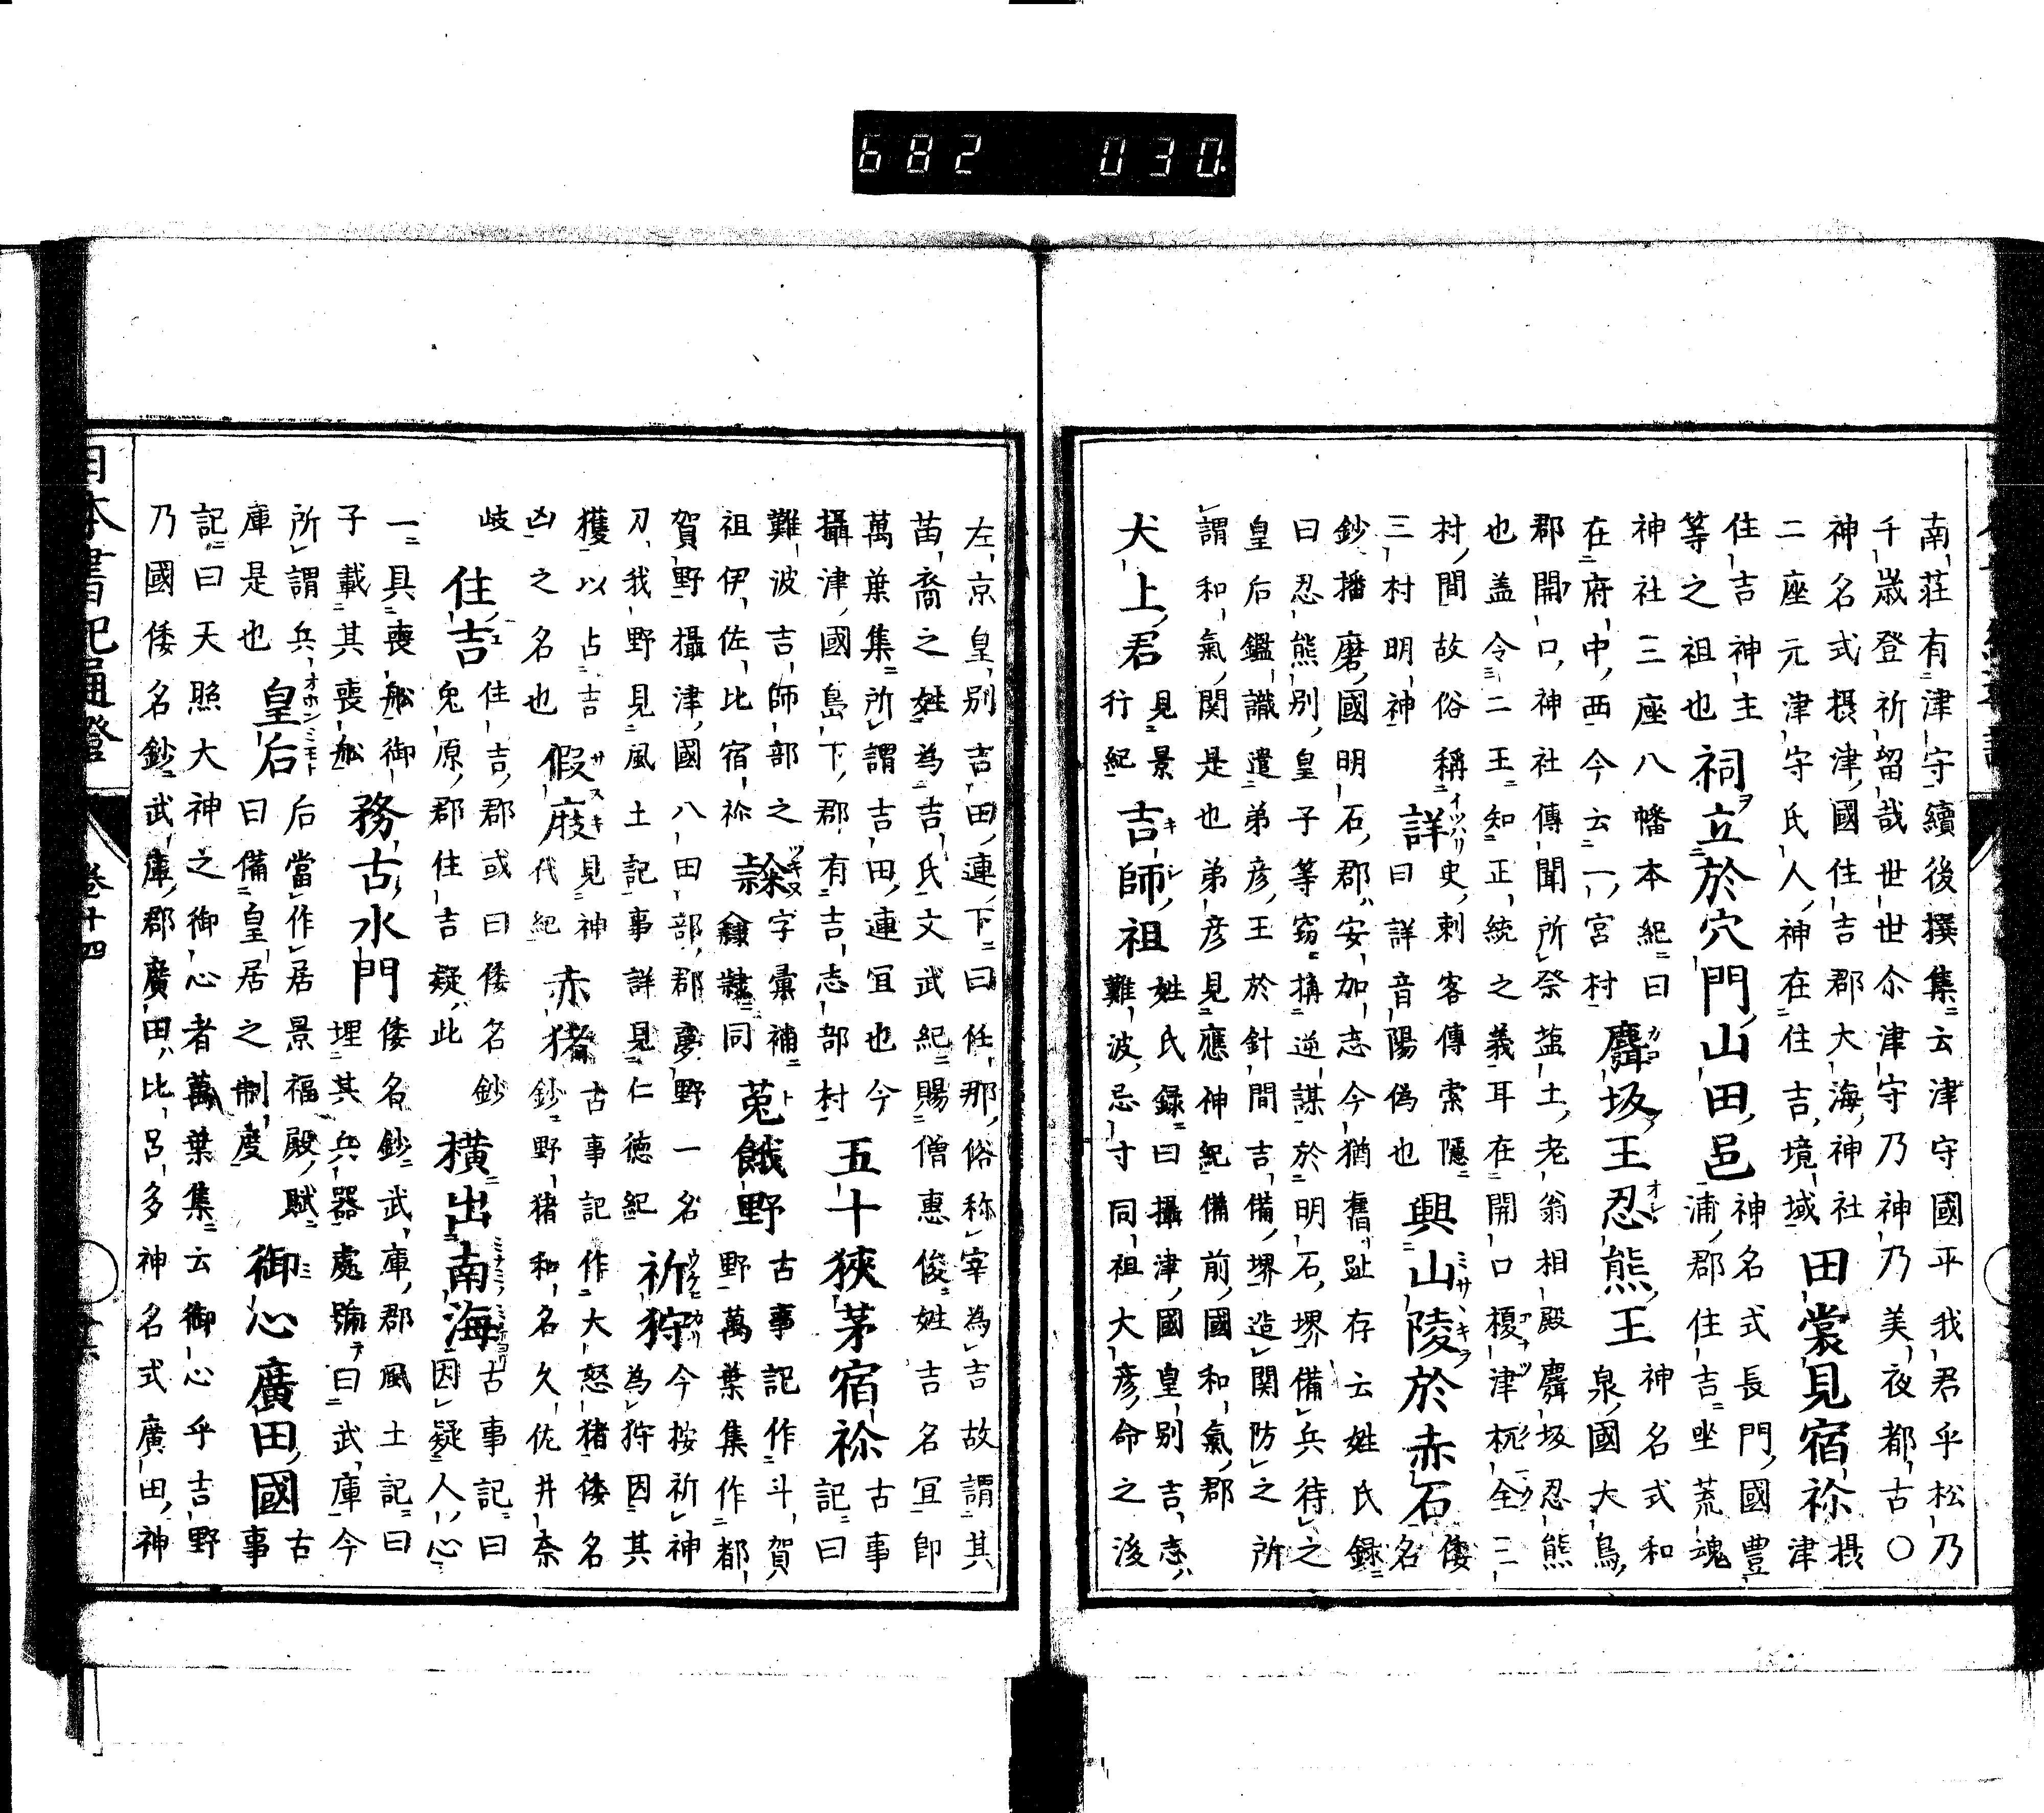 682 030.
南莊有津守續後撰集云津守國平我君乎松乃
千歳登祈留哉世世尒津守乃神乃美夜都古〇
神名式摂津國住吉郡大海神社田裳見宿祢摂
二座元津守氏人神在住吉境域田裳見宿祢津
住吉神主祠立於穴門山田邑神名式長門國豊
等之祖也祠立於穴門山田邑浦郡住吉坐荒魂
神社三座八幡本紀曰麛坂王忍熊王神名式和
在府中西今云一宮村麛坂王忍熊王泉國大鳥
郡開口神社傳聞所祭盐土老翁相殿麛坂忍熊
也盖令二王知正統之義耳在開口榎津杭全三
村間故俗稱詳史刺客傳索隱興山陵於赤石倭
三村明神詳曰詳音陽偽也興山陵於赤石名
鈔播磨國明石郡安加志今猶舊趾存云姓氏録
曰忍熊別皇子等窃搆逆謀於明石堺備兵待之
皇后鑑識遣弟彦王於針間吉備堺造関防之所
謂和氣関是也弟彦見應神紀備前國和氣郡
犬上君見景行紀吉師祖姓氏録曰攝津國皇別吉志
難波忌寸同祖大彦命之後
左京皇別吉田連下曰任那俗称宰為吉故謂其
苗裔之姓為吉氏文武紀賜僧惠俊姓吉名冝即
萬葉集所謂吉田連冝也今五十狹茅宿祢古事
攝津國島下郡有吉志部村五十狹茅宿祢記曰
難波吉師部之隸字彙補菟餓野古事記作斗賀
祖伊佐比宿祢同菟餓野野萬葉集作都
賀野攝津國八田部郡夢野一名祈狩今按祈神
刀我野見風土記事詳見仁徳紀祈狩為狩因其
獲以占吉假庪見神赤猪古事記作大怒猪倭名
凶之名也假庪代紀赤猪鈔野猪和名久佐井奈
岐住吉住吉郡或曰倭名鈔横出南海古事記曰
菟原郡住吉疑此因疑人心
一具喪舩御務古水門倭名鈔武庫郡風土記曰
子載其喪舩務古水門埋其兵器處號曰武庫今
所謂兵皇后后當作居景福殿賦御心廣田國古
庫是也曰備皇居之制度事
記曰天照大神之御心者萬葉集云御心乎吉野
乃國倭名鈔武庫郡廣田比呂多神名式廣田神
日本書紀通證
卷十四